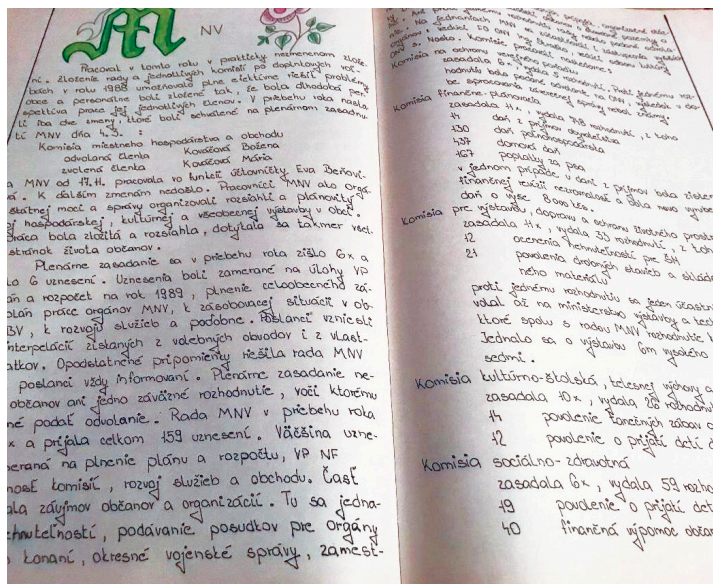 MNV
Pracoval v tomto roku v prakticky nezmenenom zlože-
ní. Zloženie rady a jednotlivých komisií po doplnkových voľ-
bách v roku 1988 umožňovalo plne efektívne riešiť problémy
obce a personálne boli zložené tak, že bola dlhodobá per-
spektíva práce jej jednotlivých členov. V priebehu roka nasta-
li iba dve zmeny, ktoré boli schválené na plenárnom zasadnu-
tí MNV dňa 4.3. :
Komisia miestneho hospodárstva a obchodu
odvolaná členka Kováčová Božena
zvolená členka Kováčová Mária
a MNV od 17.11. pracovala vo funkcii účtovníčky Eva Beňovi-
K ďalším zmenám nedošlo. Pracovníci MNV ako orgá-
štátnej moci a správy organizovali rozsiahlu a plánovitú
hospodárskej, kultúrnej a všeobecnej výstavby v obci.
práca bola zložitá a rozsiahla, dotýkala sa takmer všet-
stránok života občanov.
Plenárne zasadanie sa v priebehu roka zišlo 6x a
lo 6 uznesení. Uznesenia boli zamerané na úlohy VP
án a rozpočet na rok 1989, plnenie celoobecného zá-
plán práce orgánov MNV, k zásobovacej situácii v ob-
BV, k rozvoju služieb a podobne. Poslanci vzniesli
interpelácií získaných z volebných obvodov i z vlast-
atkov. Opodstatnené pripomienky riešila rada MNV
poslanci vždy informovaní. Plenárne zasadanie ne-
občanov ani jedno záväzné rozhodnutie, voči ktorému
né podať odvolanie. Rada MNV v priebehu roka
x a prijala celkom 159 uznesení. Väčšina uzne-
meraná na plnenie plánu a rozpočtu, VP NF
nosť komisií, rozvoj služieb a obchodu. Časť
ala záujmov občanov a organizácií. Tu sa jedna-
chnuteľností, podávanie posudkov pre orgány
konaní, okresné vojenské správy, zamest-
Komisia na ochranu verejného poriadku
zasadala 6x,
Komisia finančno-plánovacia
zasadala 11x, vydala 1148 rozhodnutí, z toho
14 daň z príjmov obyvateľstva
430 daň poľnohospodárska
437 domová daň
167 poplatky za psa
v jednom prípade v dani z príjmov bola zisten
finančnej revízii nezrovnalosť a bola novo vyrube
daň o výške 8 000 Kčs.
Komisia pre výstavbu, dopravu a ochranu životného prostre
zasadala 11x, vydala 33 rozhodnutí, z toho
12 ocenenia nehnuteľností pre ŠN
21 povolenia drobných stavieb a sklado
ného materiálu
proti jednému rozhodnutiu sa jeden účastní
volal až na ministerstvo výstavby a tech
ktoré spolu s radou MNV rozhodnutie
Jednalo sa o výstavbu 6m vysokého
sedmi.
Komisia kultúrno-školská, telesnej výchovy a
zasadala 10x, vydala 26 rozhodnutí
14 povolenie tanečných zábav a
12 povolenie o prijatí detí d
Komisia sociálno-zdravotná
zasadala 6x, vydala 59 rozho
19 povolenie o prijatí detí
40 finančná výpomoc občan